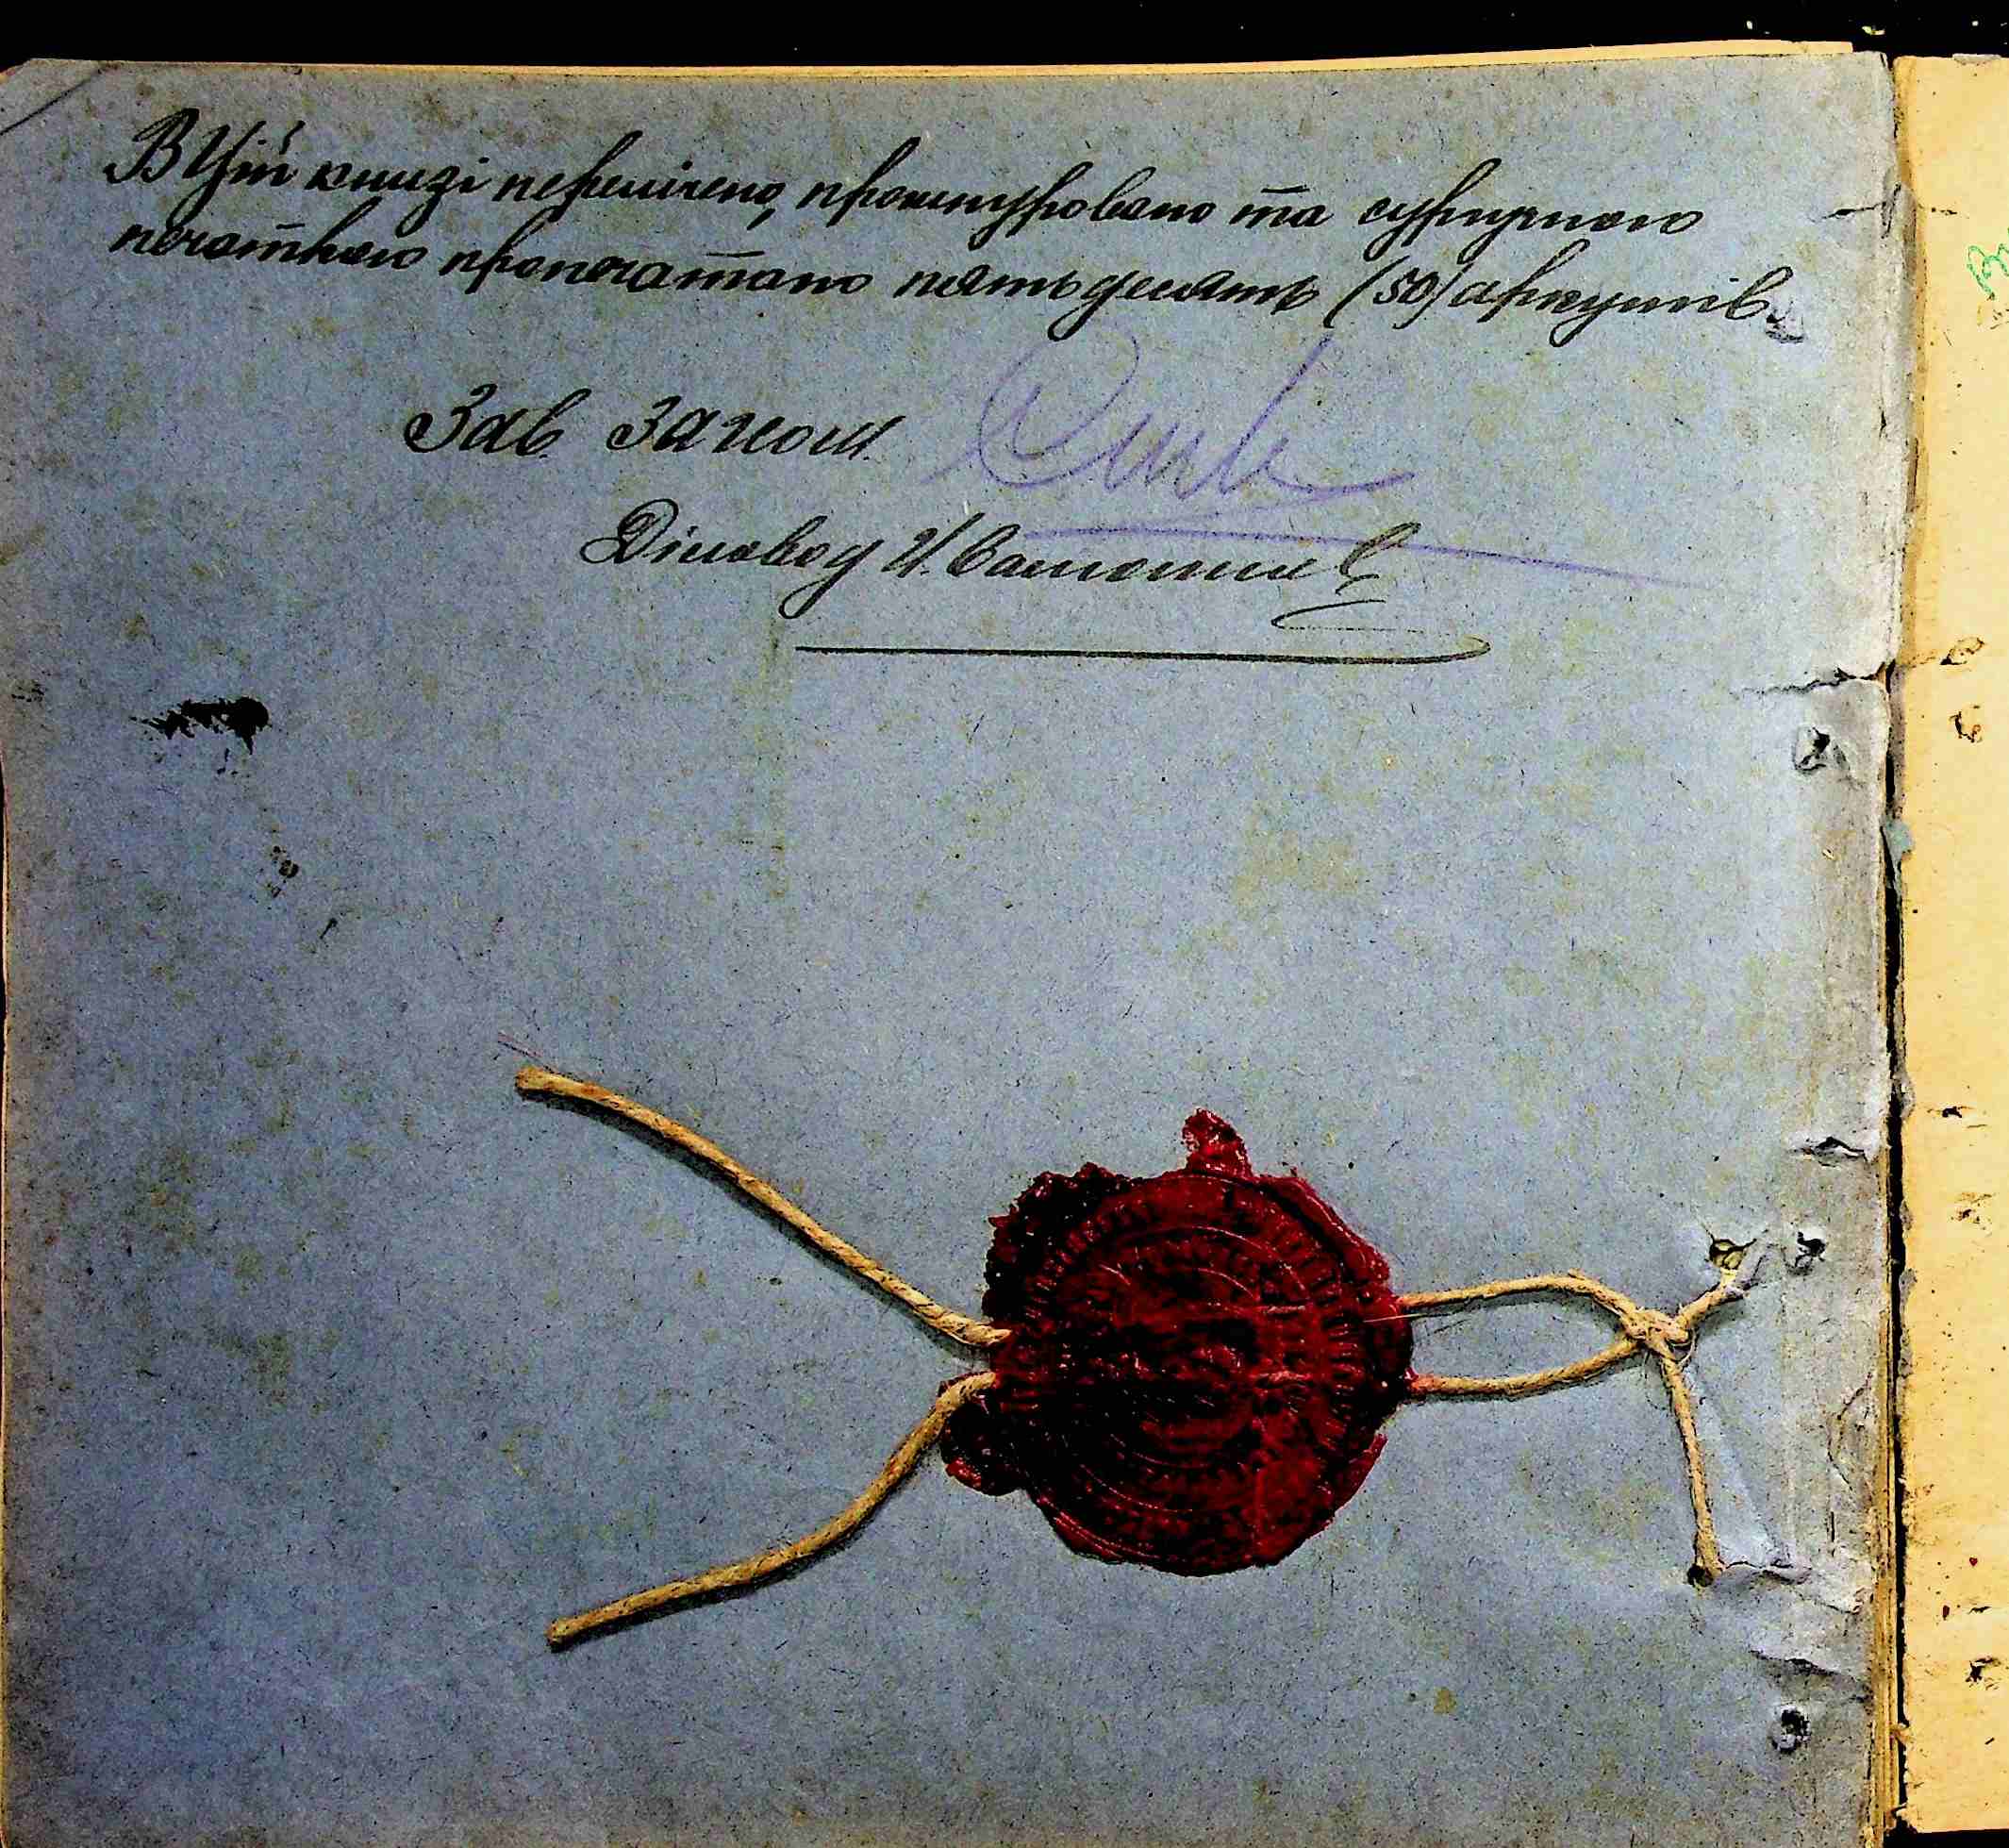 В Цій книзі перелічено, прошнуровано та сургучною
печаткою пропечатано пятьдесять (50) аркушів.
Зав. загсом
Діловод